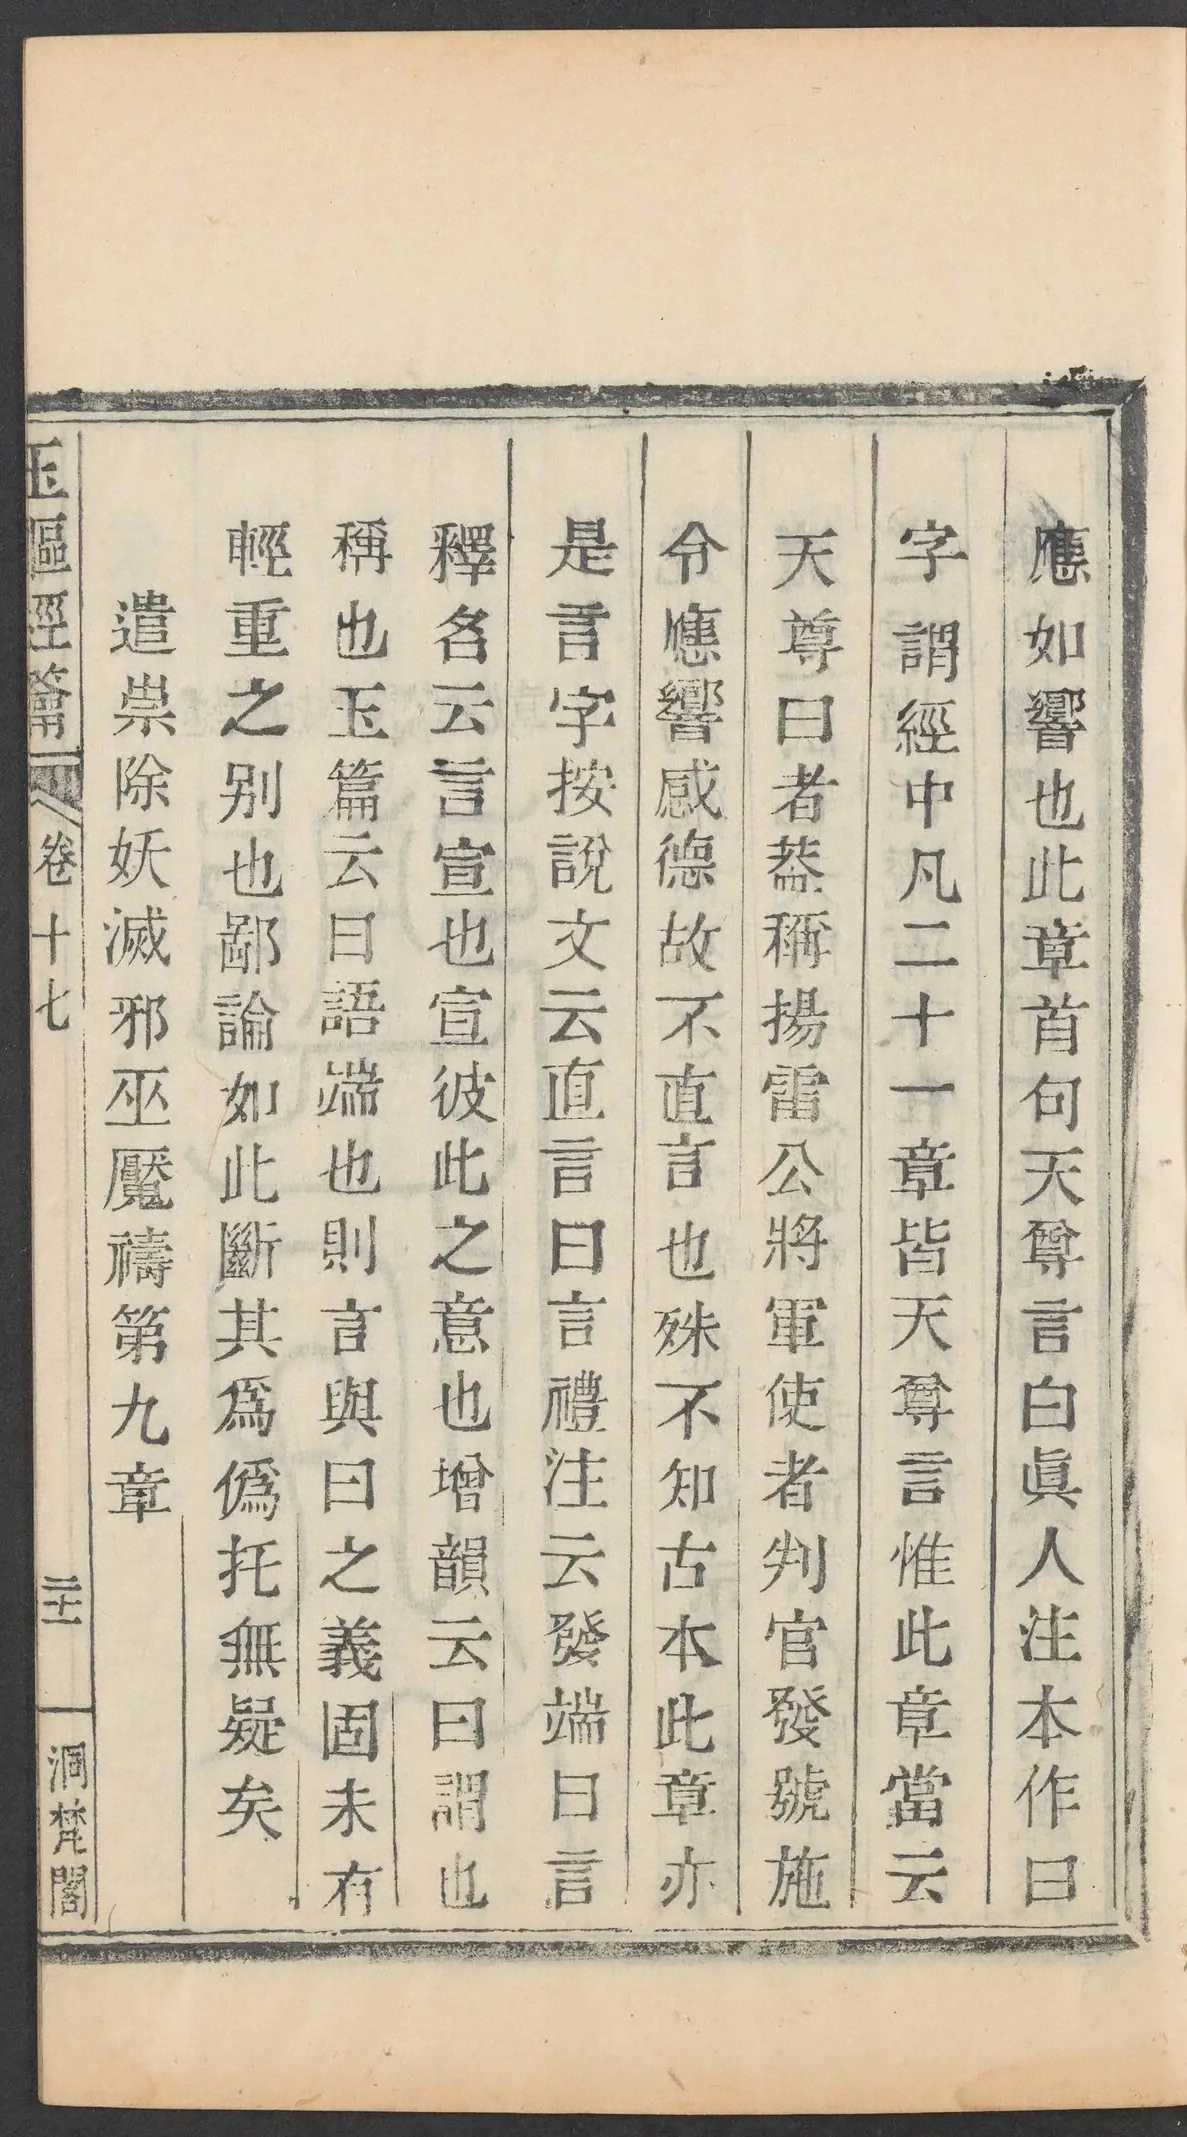 應如響也此章首句天尊言白眞人注本作曰
字謂經中凡二十一章皆天尊言惟此章當云
天尊曰者葢稱揚雷公將軍使者判官發號施
令應響感德故不直言也殊不知古本此章亦
是言字按說文云直言曰言禮注云發端曰言
釋名云言宣也宣彼此之意也增韻云曰謂也
稱也玉篇云曰語端也則言與曰之義固未有
輕重之別也鄙論如此斷其爲僞托無疑矣
遣祟除妖滅邪巫魘禱第九章
玉樞經籥
卷十七
二十一
洞梵閣